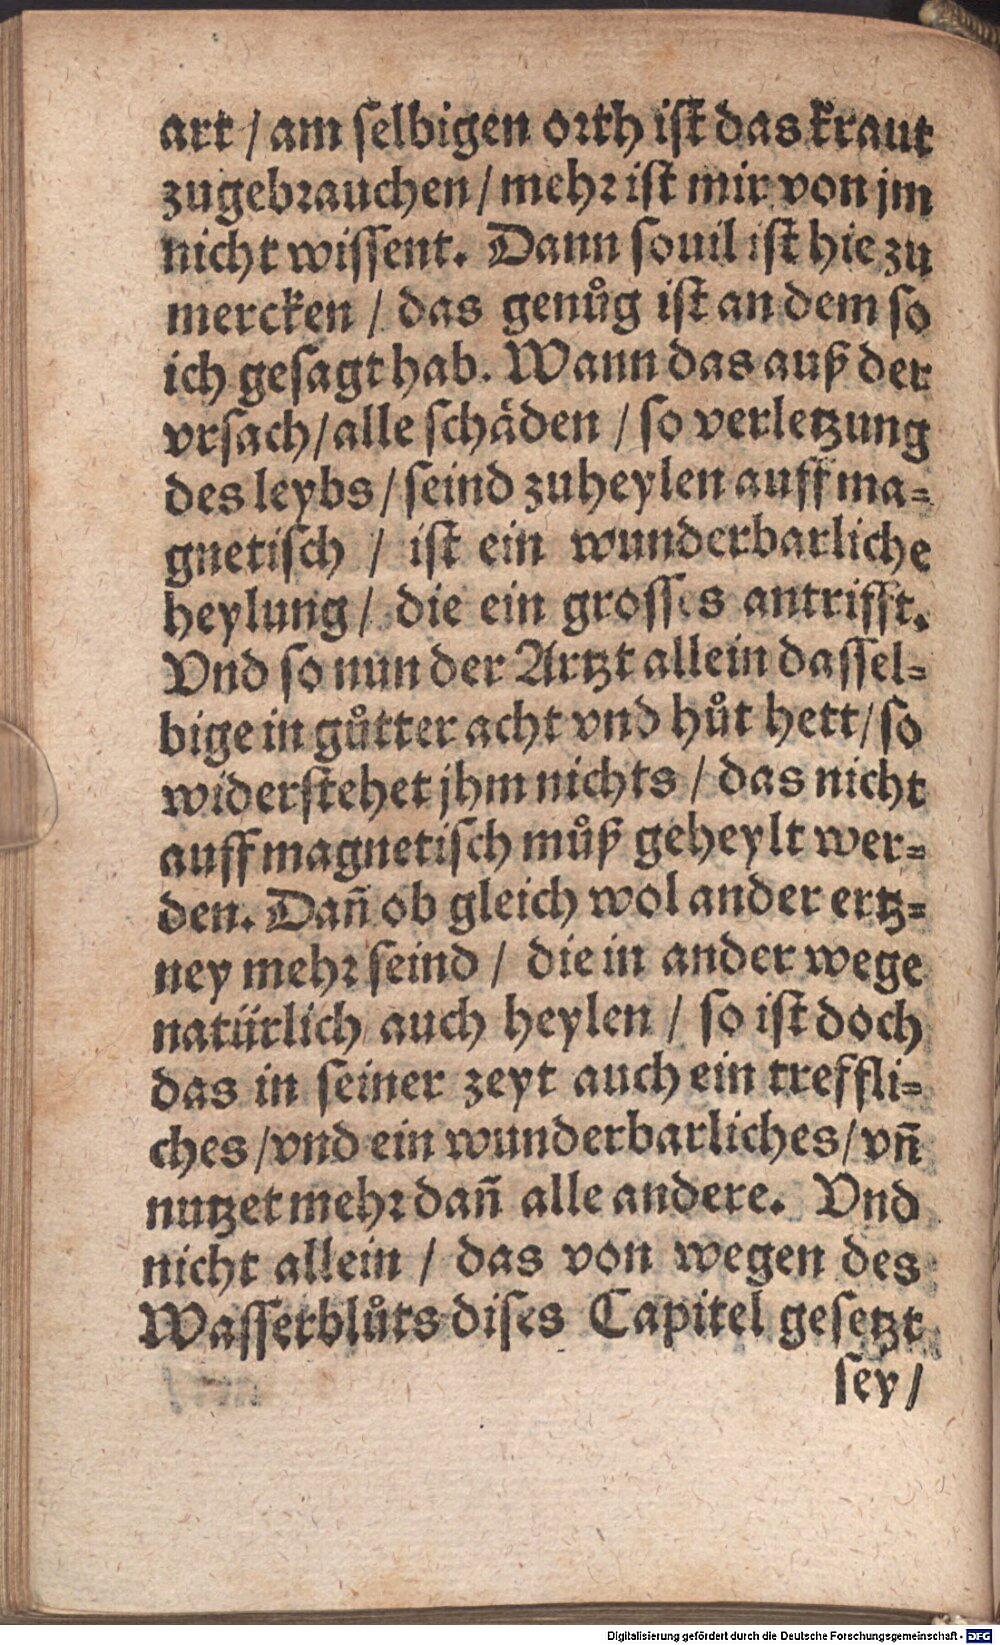 art / am selbigen orth ist das kraut
zugebrauchen / mehr ist mir von jm
nicht wissent. Dann souil ist hie zu
mercken / das genůg ist an dem so
ich gesagt hab. Wann das auß der
vrsach / alle schäden / so verletzung
des leybs / seind zuheylen auff ma=
gnetisch / ist ein wunderbarliche
heylung / die ein grosses antrifft.
Vnd so nun der Artzt allein dassel=
bige in gůtter acht vnd hůt hett / so
widerstehet jhm nichts / das nicht
auff magnetisch můß geheylt wer=
den. Dañ ob gleich wol ander ertz=
ney mehr seind / die in ander wege
natürlich auch heylen / so ist doch
das in seiner zeyt auch ein treffli=
ches / vnd ein wunderbarliches / vñ
nutzet mehr dañ alle andere. Vnd
nicht allein / das von wegen des
Wasserblůts dises Capitel gesetzt
sey /
Digitalisierung gefördert durch die Deutsche Forschungsgemeinschaft - DFG